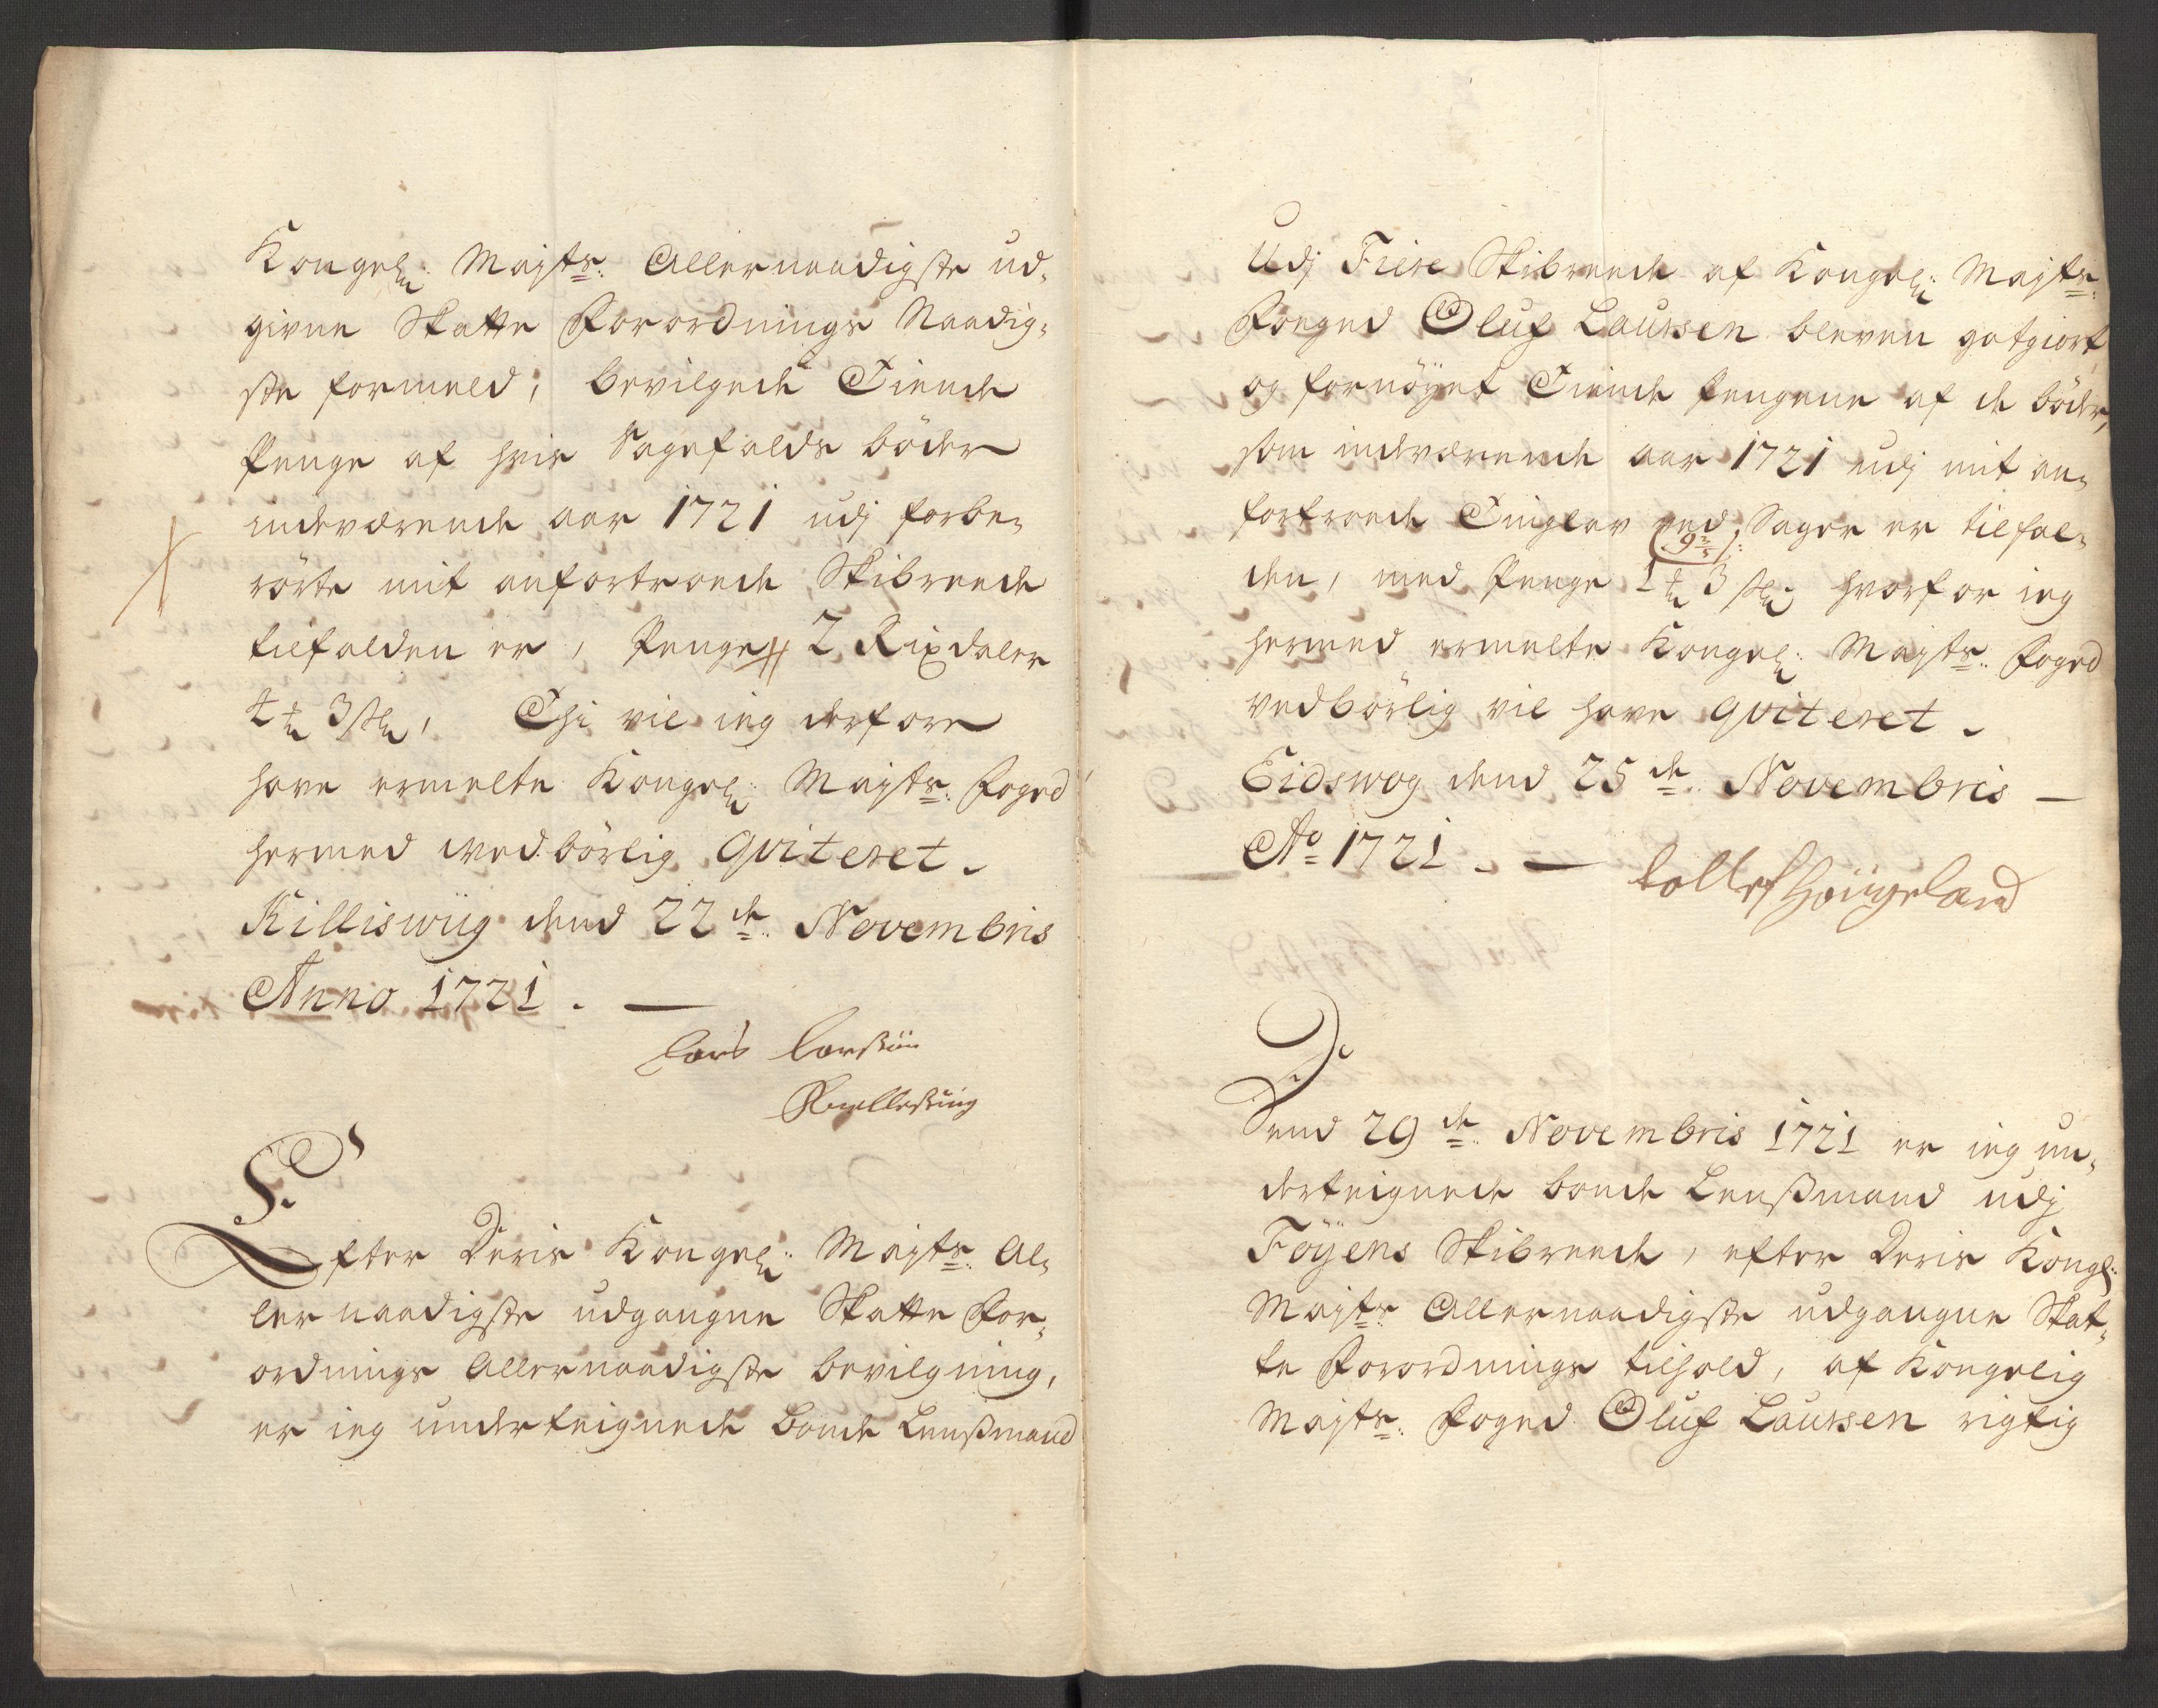 Kongel: Maÿts: Allernaadigste ud,
givne Skatte Forordnings Naadig,
ste formeld, bevilgede Tiende
Penge af hvis Sagefalds bøder
indeværende aar 1721 udj forbe,
rørte mit anfortroede Skibrede
tilfalden er, Penge 2 Rixdaler
3
Thi vil ieg derfore
have ermelte Kongel: Maÿts: Foged
hermed wedbørlig qviteret.
Killiswiig dend 22de Novembris
Anno 1721. —
Lars Larsøn
Efter Deris Kongel: Maÿts: Al,
lernaadigste udgangne Skatte For,
ordnings Allernaadigste bevilgning,
er ieg underteignede Bonde Lensmand
Udj Fiere Skibrede af Kongel: Maÿts:
Foeged Oluf Laursen bleven gotgiort,
og fornøÿet Tiende Pengene af de bøder,
som indeværende aar 1721 udj mit an,
fortroede Tinglav ved Sager er tilfal,
den, med Penge 1 3 hvorfor ieg
hermed ermelte Kongel: Maÿts: Foged
vedbørlig vil have qviteret.
Eidswog dend 25de Novembris —
Ao 1721. —
Tollef Høugeland
Dend 29de Novembris 1721 er ieg un,
derteignede bonde Lensmand udj
Føÿens Skibrede, efter Deris Kongl:
Maÿts: Allernaadigste udgangne Skat,
te Forordnings tilhold, af Kongelig
Maÿts: Foged Oluf Laursen rigtig